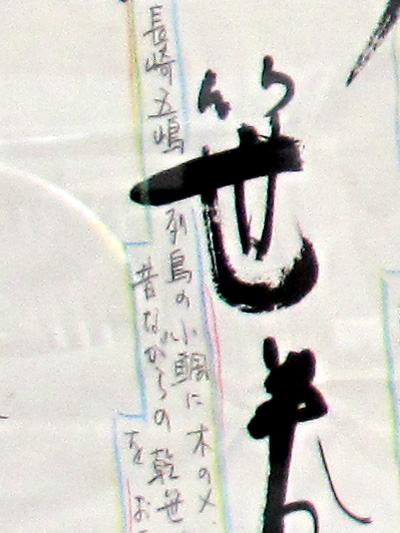 笹
長崎五嶋列島の小鯛に
木の
昔ながらの乾笹
をお